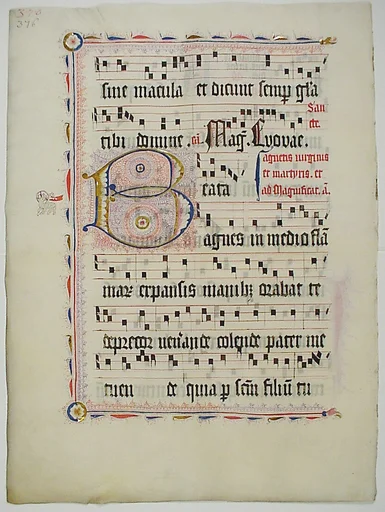 sine macula et dicunt semp gl'a
tibi domine. Mag. Euouae.
San
cte
agnetis uirginis
et martyris. et
ad Magnificat. a.
Beata
agnes in medio flā
mar expansis manibz orabat te
deprecor uen'ande colende pater me
tuen de quia p scm filiū tu